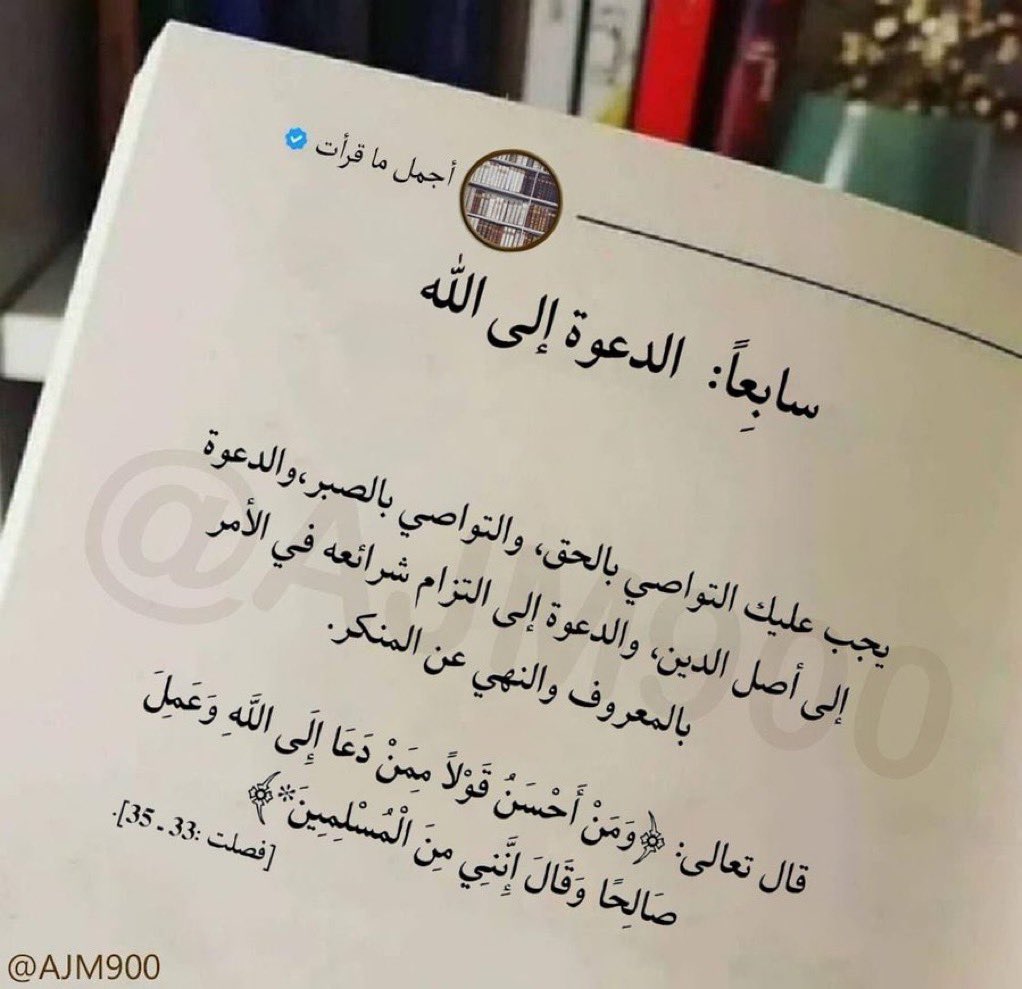 أجمل ما قرأت
سابِعاً: الدعوة إلى الله
يجب عليك التواصي بالحق، والتواصي بالصبر،والدعوة
إلى أصل الدين، والدعوة إلى التزام شرائعه في الأمر
بالمعروف والنهي عن المنكر.
قال تعالى: ﴿وَمَنْ أَحْسَنُ قَوْلاً مِمَنْ دَعَا إِلَى اللَّهِ وَعَمِلَ
صَالِحًا وَقَالَ إِنَّنِي مِنَ الْمُسْلِمِينَ*﴾
[فصلت :33ـ 35].
@AJM900
@AJM900